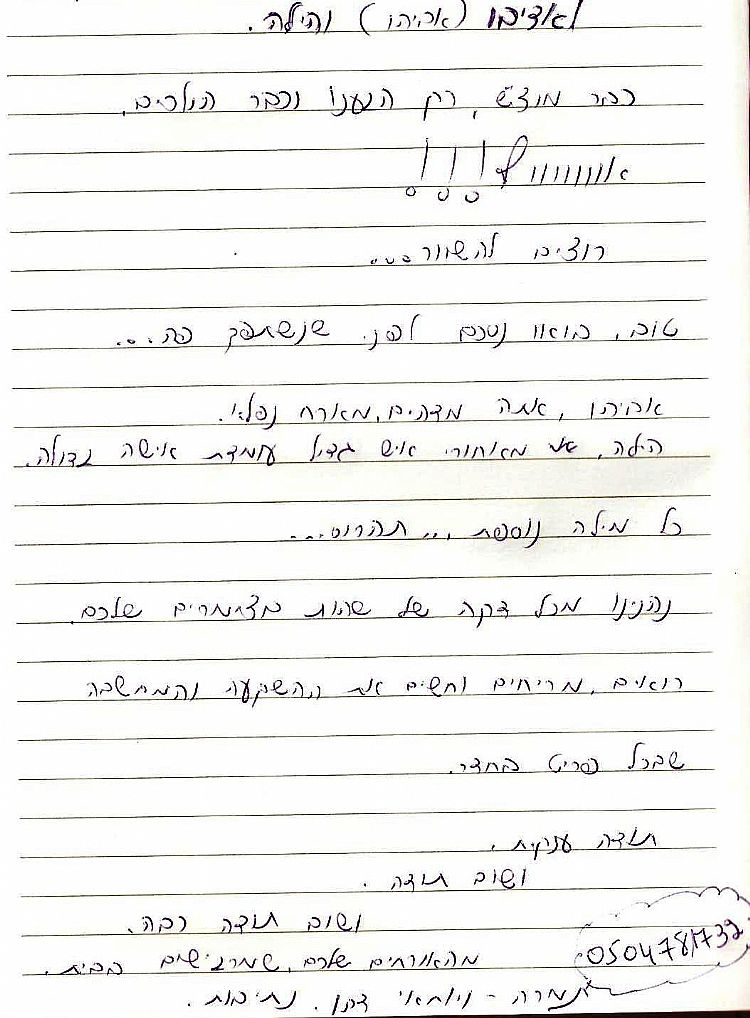 לאציבו (אביהו) והילה.
כבר מוצ"ש, רק הגענו וכבר הולכים.
אוווווווף!!!
רוצים להשאר....
טוב, בואו נסכם לפני שנשתפך פה...
אביהו, אתה מדהים, מארח נפלא.
הילה, את מאחורי איש גדול עומדת אישה גדולה.
כל מילה נוספת ,,, תהרוס...
נהנינו מכל דקה של שהות בצימרים שלכם.
רואים, מריחים וחשים את ההשקעה והמחשבה
שבכל פריט בחדר.
תודה ענקית.
ושוב תודה.
ושוב תודה רבה.
מהאורחים שלכם, שמרגישים בבית.
תמרה - ויוחאי דהן. נתיבות.
0504781732